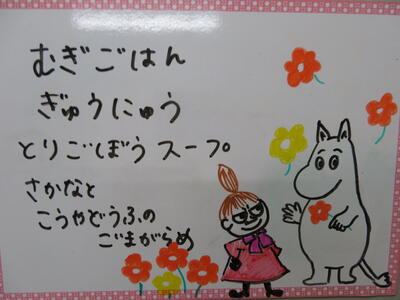 むぎごはん
ぎゅうにゅう
とりごぼうスープ
さかなと
こうやどうふの
ごまがらめ